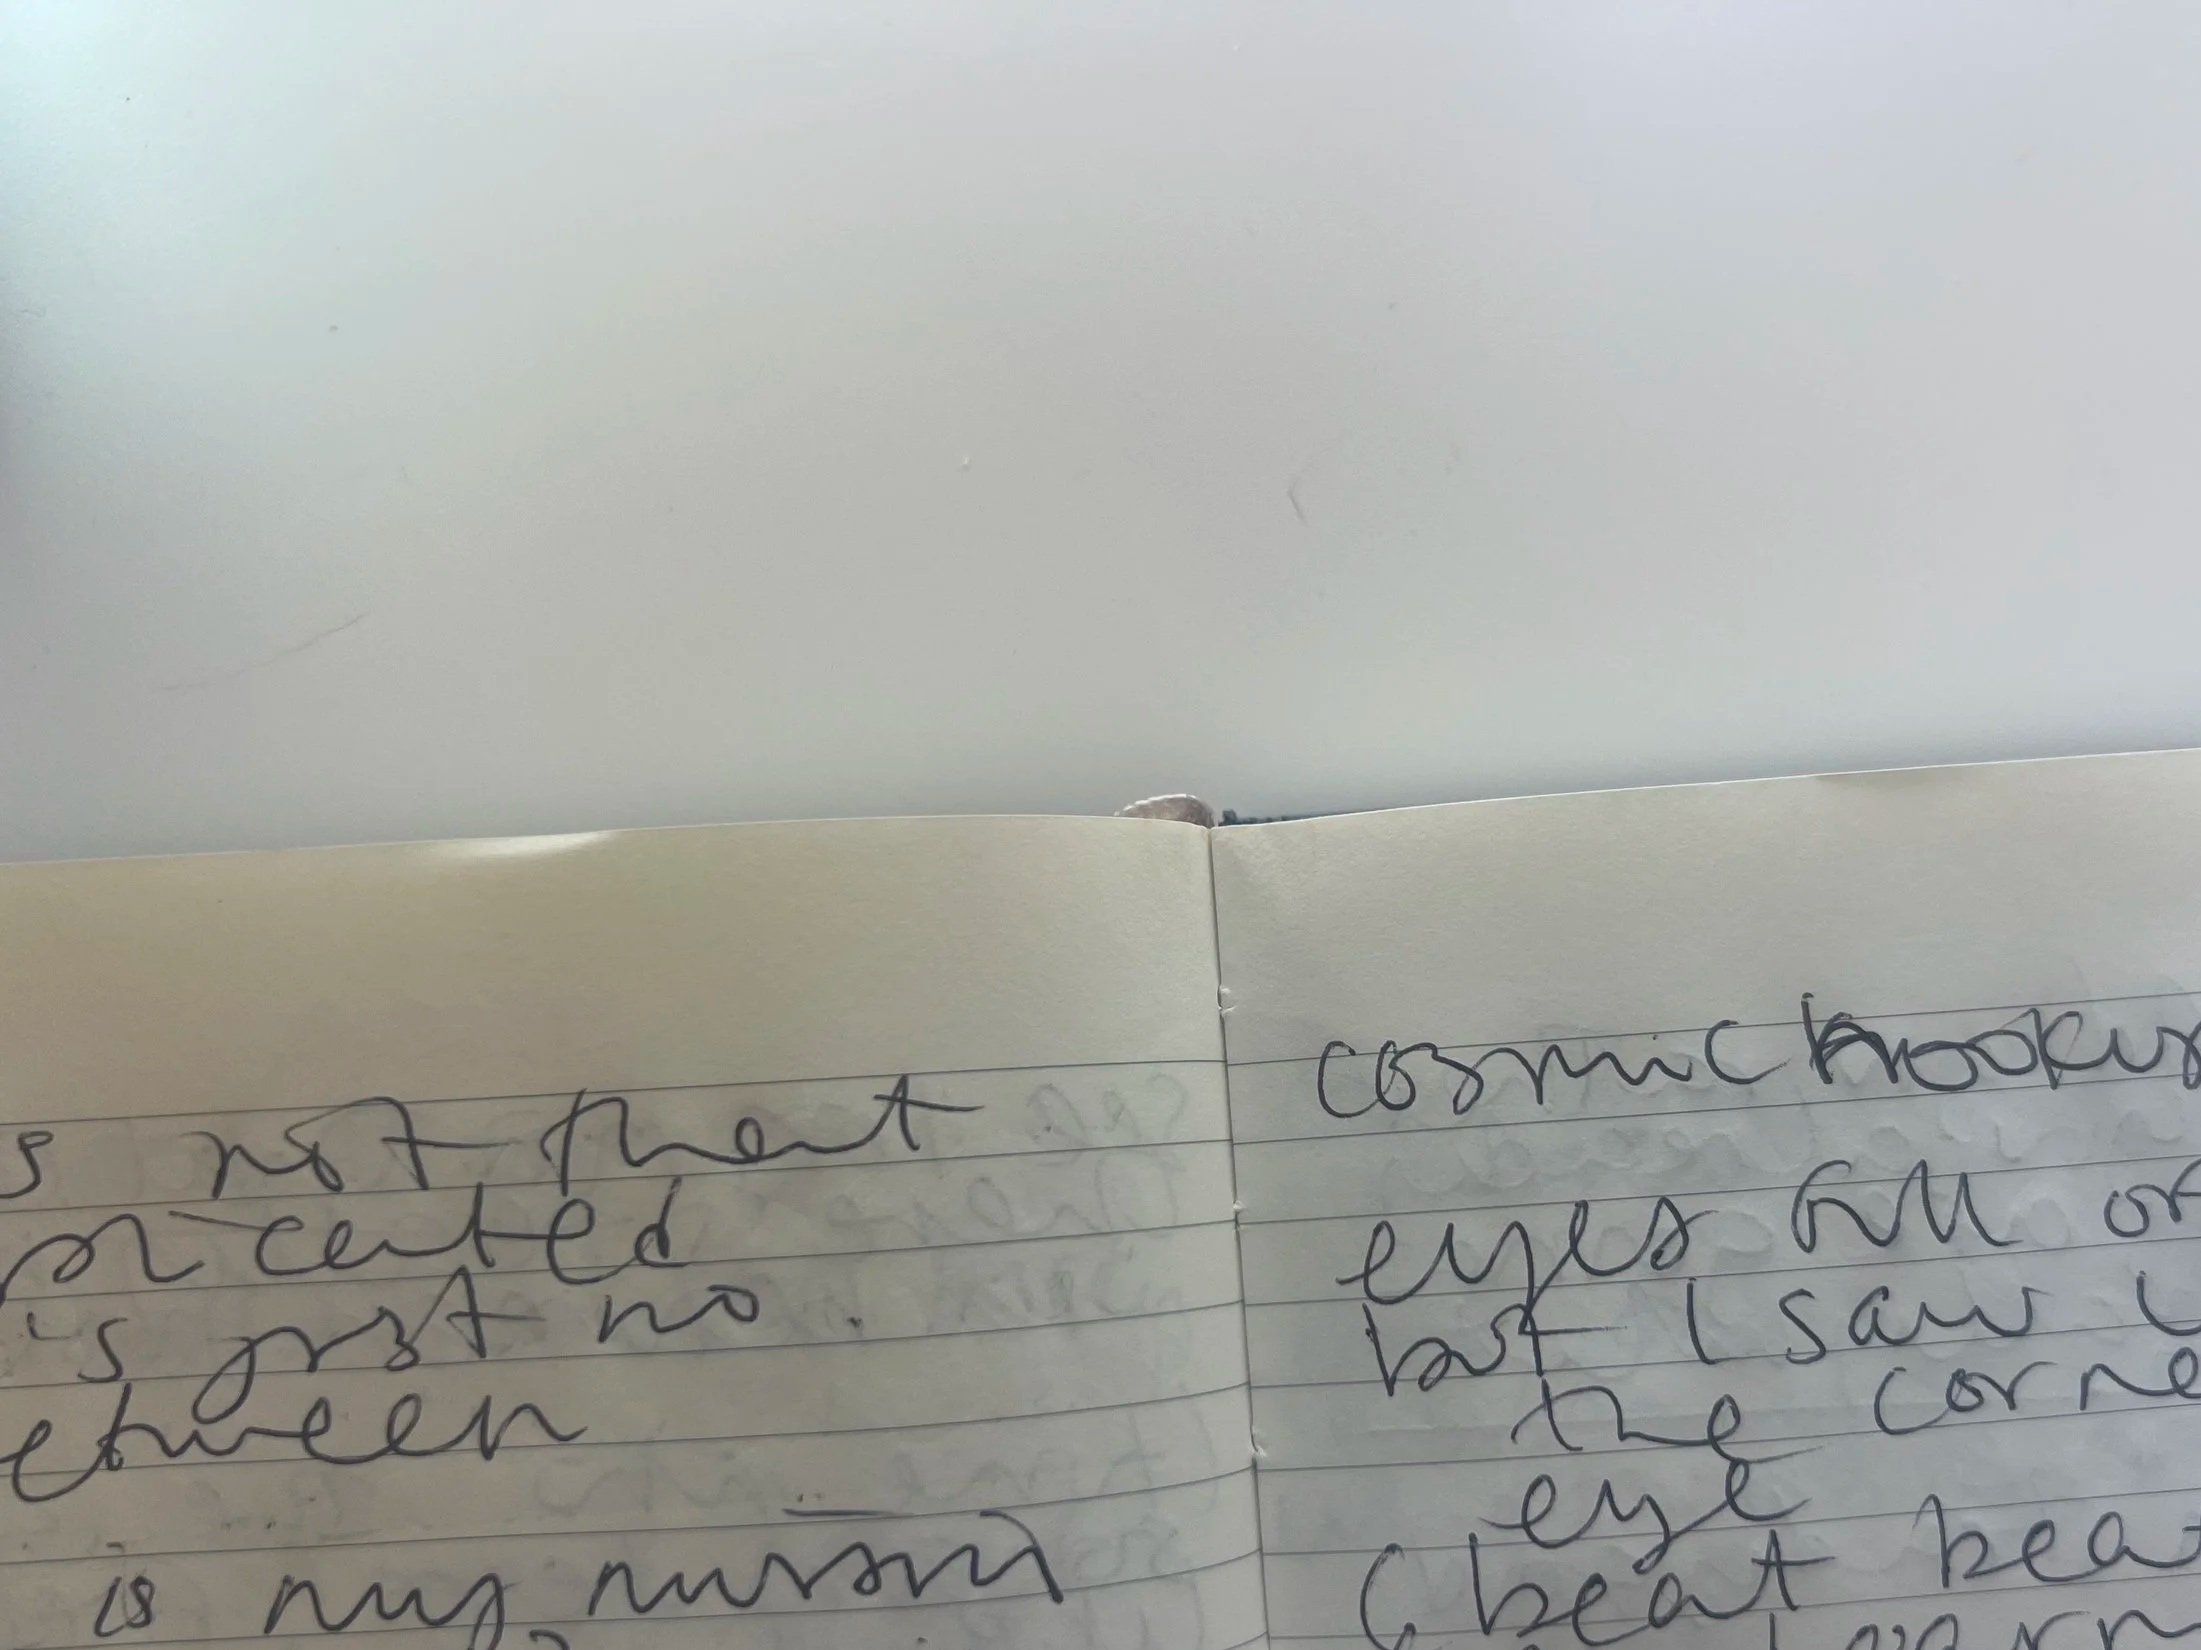 s not that
plicated
's just no
etween
is my
cosmic hookup
eyes full of
but I saw
the corne
eye
(beat bea